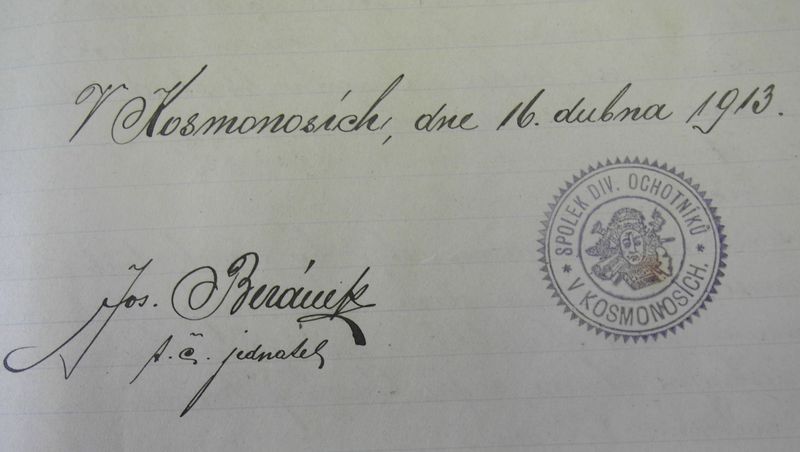 V Kosmonosích, dne 16. dubna 1913.
SPOLEK DIV. OCHOTNÍKŮ
* V KOSMONOSÍCH. *
Jos. Beránek
t. č. jednatel